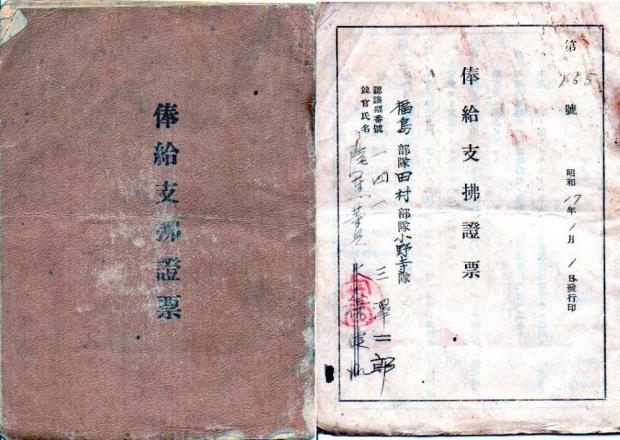 俸給支拂證票
第 165 號
昭和 17年 1月 1日發行印
俸給支拂證票
福島部隊田村部隊小野寺隊
三澤二郎
認識票番號 一四一
竝官氏名